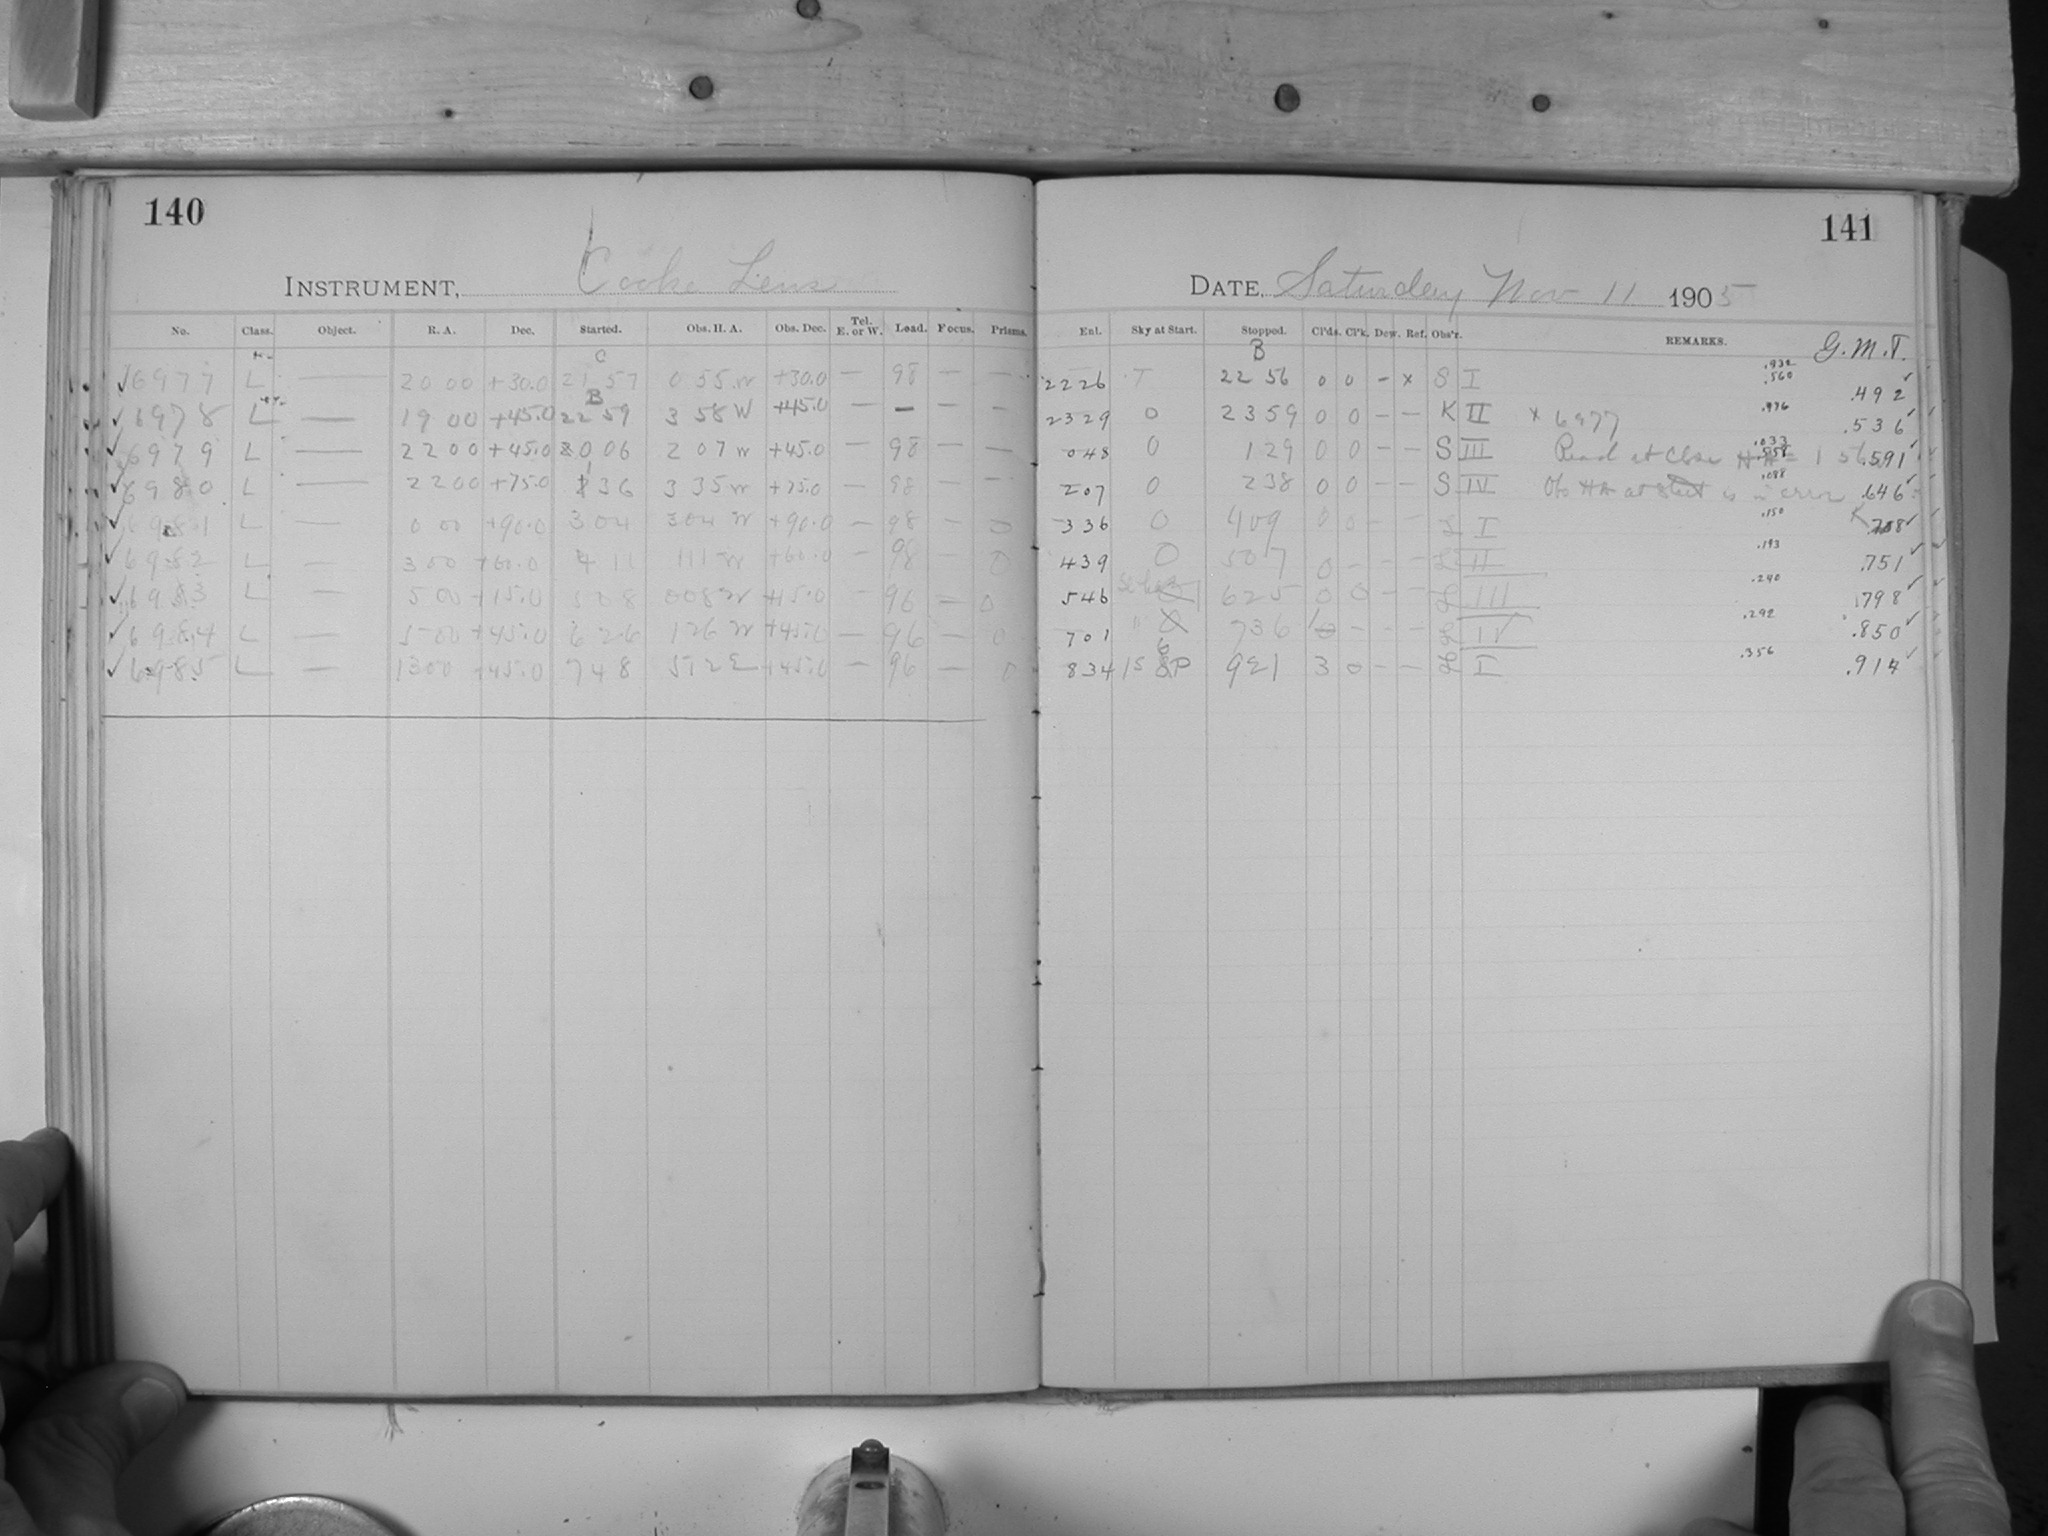 140
INSTRUMENT, Cooke Lens
No. Class. Object. R. A. Dec. Started. Obs. H. A. Obs. Dec. Tel. E. or W. Load. Focus. Prisms.
C
✓6977 L — 20 00 +30.0 21 57 0 55 W +30.0 — 98 — —
B
✓6978 L — 19 00 +45.0 22 59 3 58 W +45.0 — — — —
✓6979 L — 22 00 +45.0 0 06 2 07 W +45.0 — 98 — —
✓6980 L — 22 00 +75.0 1 36 3 35 W +75.0 — 98 — —
6981 L — 0 00 +90.0 3 04 3 04 W +90.0 — 98 — 0
✓6982 L — 3 00 +60.0 4 11 1 11 W +60.0 — 98 — 0
✓6983 L — 5 00 +15.0 5 08 0 08 W +15.0 — 96 — 0
✓6984 L — 5 00 +45.0 6 26 1 26 W +45.0 — 96 — 0
✓6985 L — 13 00 +45.0 7 48 5 12 E +45.0 — 96 — 0
141
DATE, Saturday Nov 11 1905
Enl. Sky at Start. Stopped. Cl'ds. Cl'k. Dew. Ref. Obs'r. REMARKS. G.M.T.
B
.932
.560
22 26 T 22 56 0 0 – x S I .492 ✓
.976
23 29 0 23 59 0 0 – – K II x 6977 .536 ✓
.033
0 48 0 1 29 0 0 – – S III Read at close 1 56 .591 ✓
.088
2 07 0 2 38 0 0 – – S IV Obs HA at start is in error .646 ✓
.150
3 36 0 4 09 0 0 – – L I .708 ✓
.193
4 39 0 5 07 0 – – – L II .751 ✓
.240
5 46 6 25 0 0 – – L III .798 ✓
.292
7 01 " 7 36 – – – L IV .850 ✓
.356
8 34 9 21 3 0 – – L I .914 ✓